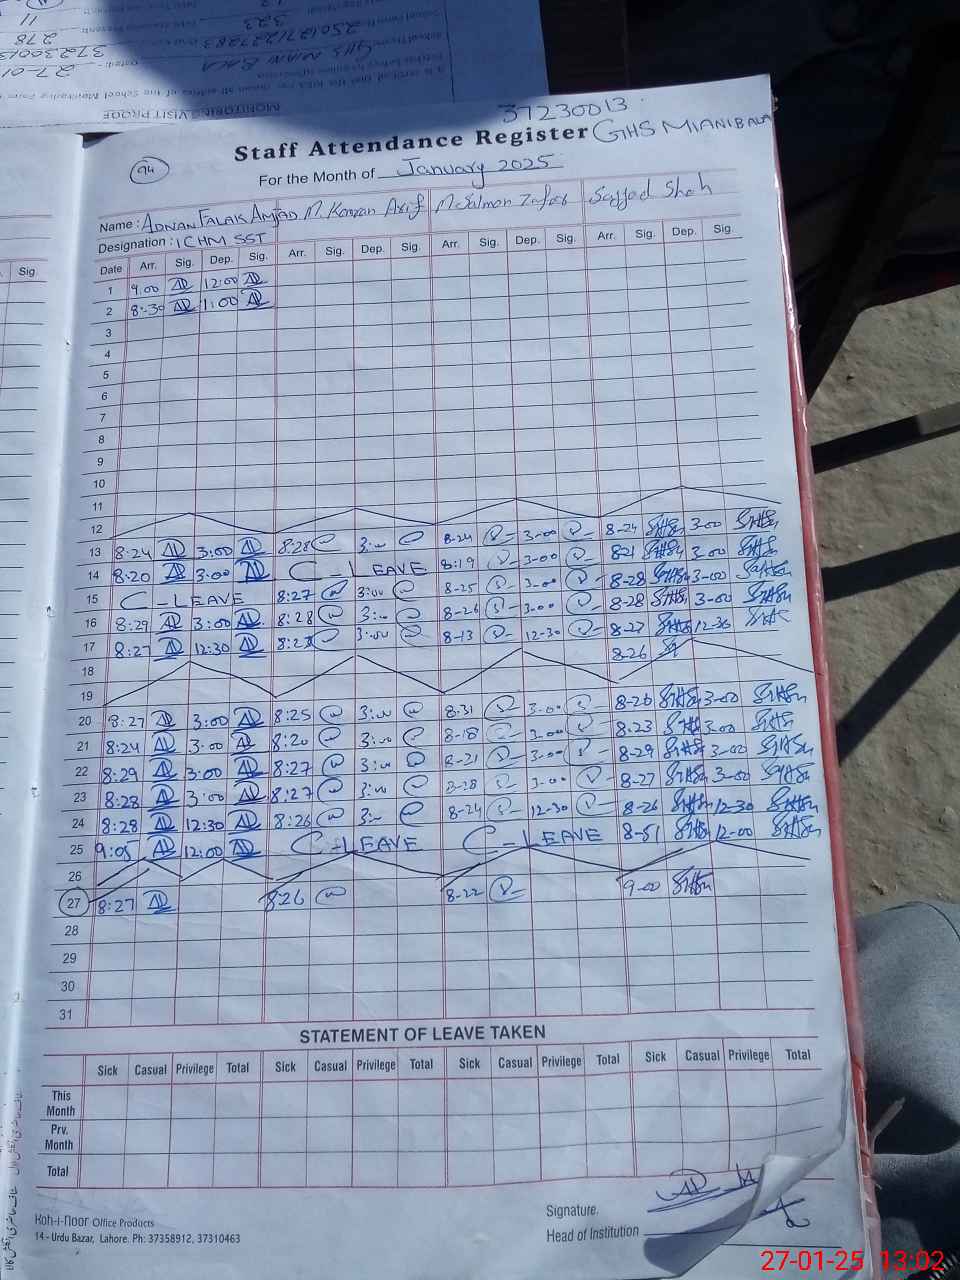 MONITORING VISIT PROOF
GHS MIAN BALA
37230013
27-01
323
278
11
37230013
Staff Attendance Register GHS MIANIBALA
94
For the Month of January 2025
Name : ADNAN FALAK AMJAD M. Kamran Arif M. Salman Zafar Sajjad Shah
Designation : ICHM SST
Date Arr. Sig. Dep. Sig. Arr. Sig. Dep. Sig. Arr. Sig. Dep. Sig. Arr. Sig. Dep. Sig.
1 9:00 12:00
2 8:30 1:00
3
4
5
6
7
8
9
10
11
12
13 8:24 3:00 8:28 3:00 8-24 3-00 8-24 3-00
14 8:20 3:00 C-LEAVE 8-19 3-00 8-21 3-00
15 C-LEAVE 8:27 3:00 8-25 3-00 8-28 3-00
16 8:29 3:00 8:28 3:00 8-26 3-00 8-28 3-00
17 8:27 12:30 8:27 3:00 8-13 12-30 8-27 12-30
18 8-26
19
20 8:27 3:00 8:25 3:00 8-31 3-00 8-26 3-00
21 8:24 3:00 8:20 3:00 8-18 3-00 8-23 3-00
22 8:29 3:00 8:27 3:00 8-21 3-00 8-29 3-00
23 8:28 3:00 8:27 3:00 8-28 3-00 8-27 3-00
24 8:28 12:30 8:26 3:- 8-24 12-30 8-26 12-30
25 9:05 12:00 C-LEAVE C-LEAVE 8-51 12-00
26
27 8:27 8:26 8-22 9-00
28
29
30
31
STATEMENT OF LEAVE TAKEN
Sick Casual Privilege Total Sick Casual Privilege Total Sick Casual Privilege Total Sick Casual Privilege Total
This Month
Prv. Month
Total
Koh-i-noor Office Products
14 - Urdu Bazar, Lahore. Ph: 37358912, 37310463
Signature.
Head of Institution
27-01-25 13:02